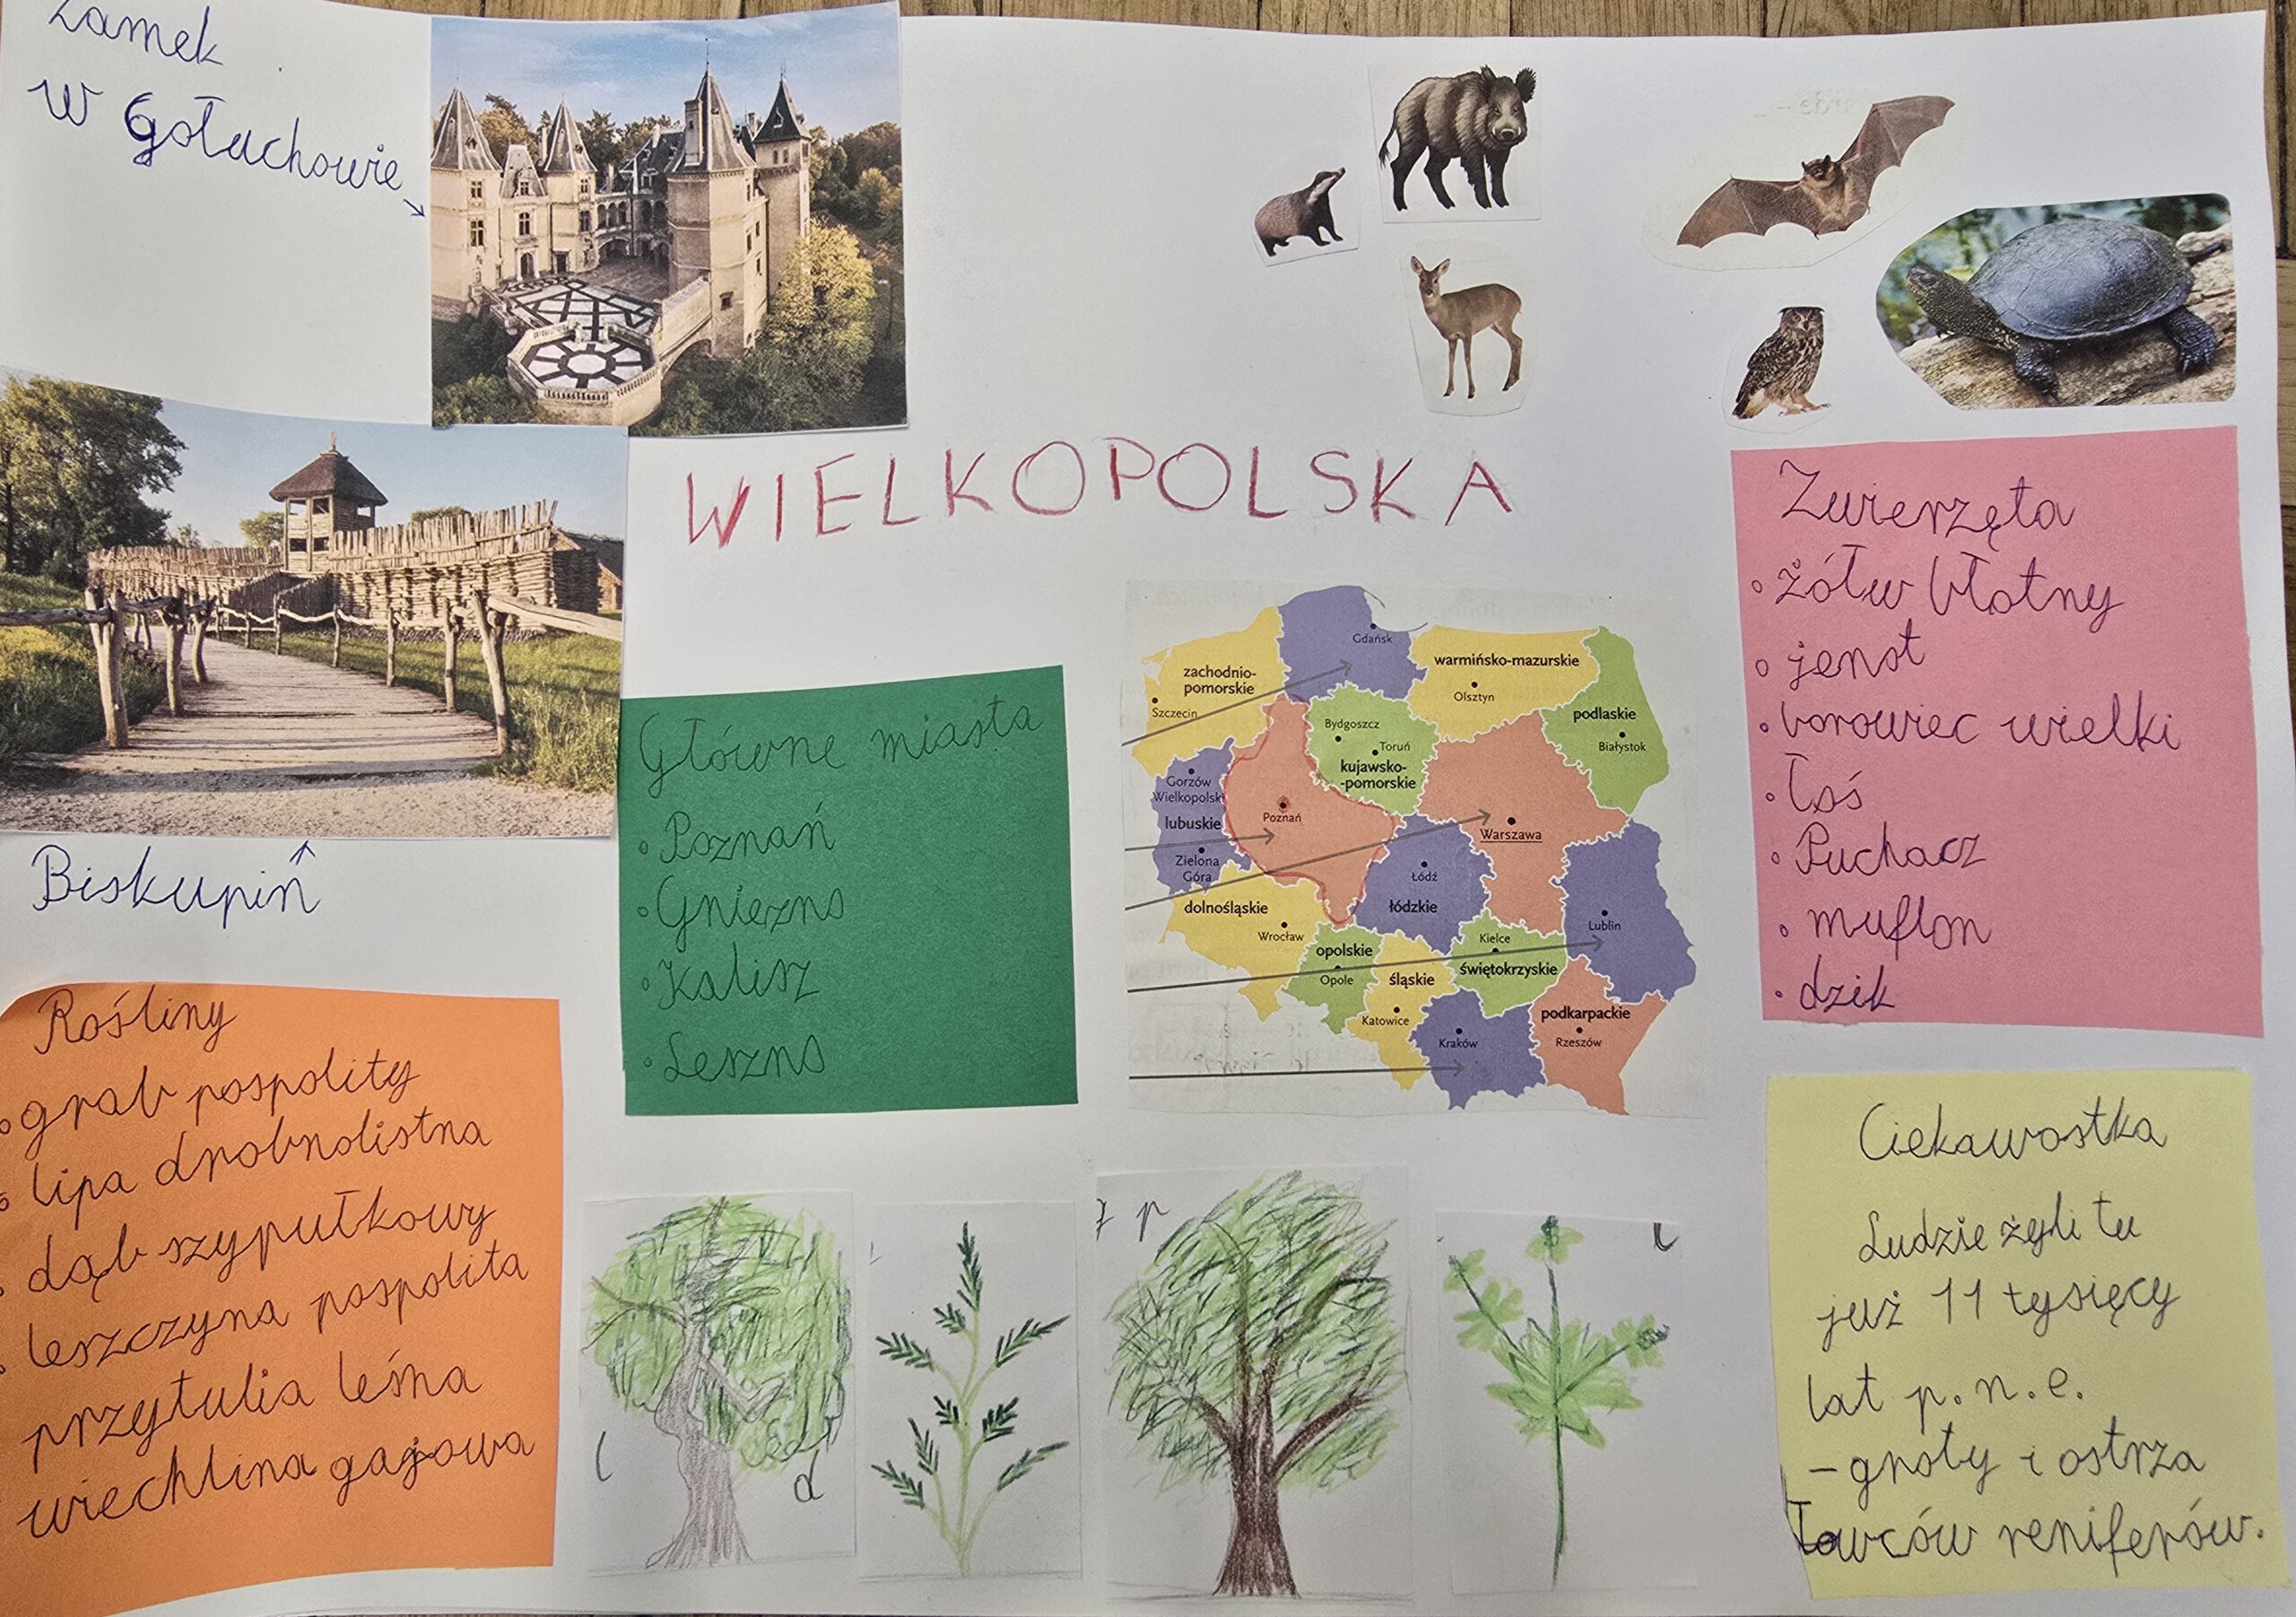 Zamek
w Gołuchowie
WIELKOPOLSKA
Biskupin
Główne miasta
Poznań
Gniezno
Kalisz
Leszno
Gdańsk
zachodnio-
pomorskie
Szczecin
warmińsko-mazurskie
Olsztyn
podlaskie
Białystok
Bydgoszcz
Toruń
kujawsko-
-pomorskie
Gorzów
Wielkopolski
lubuskie
Zielona
Góra
Poznań
Warszawa
Łódź
łódzkie
dolnośląskie
Wrocław
Lublin
opolskie
Opole
Kielce
świętokrzyskie
śląskie
Katowice
Kraków
podkarpackie
Rzeszów
Zwierzęta
żółw błotny
jenot
borowiec wielki
Łoś
Puchacz
muflon
dzik
Rośliny
grab pospolity
lipa drobnolistna
dąb szypułkowy
leszczyna pospolita
przytulia leśna
wiechlina gajowa
Ciekawostka
Ludzie żyli tu
już 11 tysięcy
lat p.n.e.
- groty i ostrza
Łowców reniferów.